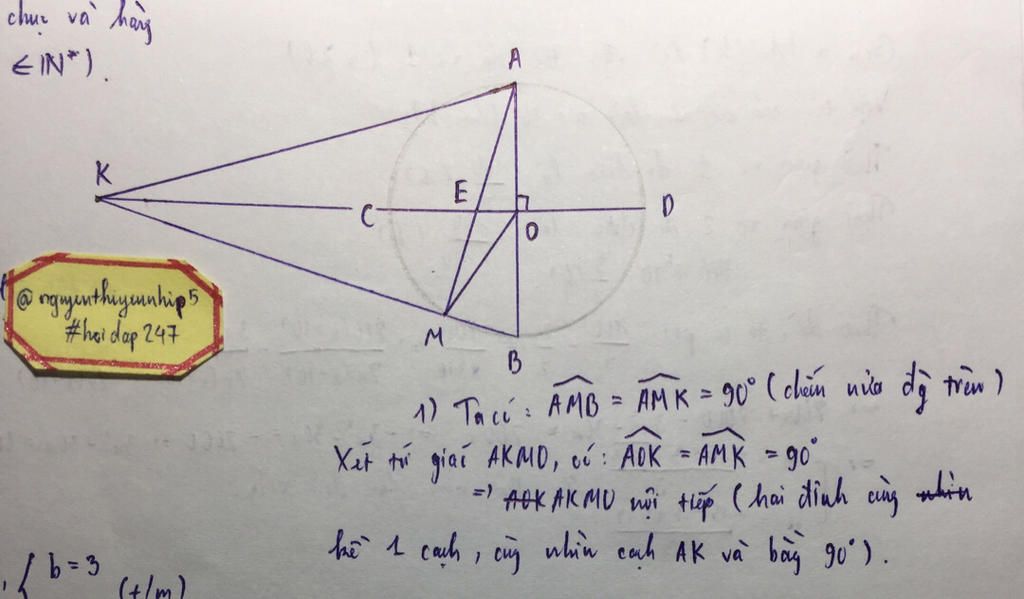 chục và hàng
∈ N*).
A
K
E
C
D
O
M
B
@nguyenthiyeunhip5
#hoidap247
1) Ta có: AMB = AMK = 90° (chắn nửa đg tròn)
Xét tứ giác AKMO, có: AOK = AMK = 90°
=> AOK AKMO nội tiếp (hai đỉnh cùng nhìn
kề 1 cạnh, cùng nhìn cạnh AK và bằng 90°).
b = 3
(t/m)